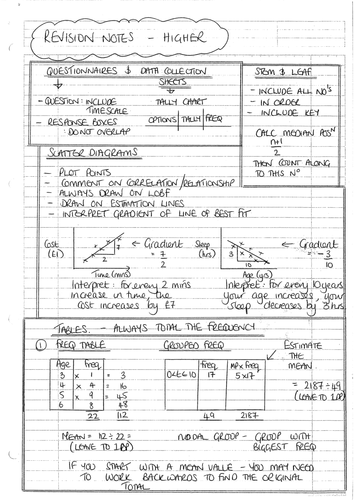 REVISION NOTES - HIGHER
QUESTIONNAIRES & DATA COLLECTION
SHEETS
- QUESTION: INCLUDE
TIMESCALE
- RESPONSE BOXES
: DO NOT OVERLAP
TALLY CHART
OPTIONS | TALLY | FREQ
STEM & LEAF
- INCLUDE ALL NO's
- IN ORDER
- INCLUDE KEY
CALC MEDIAN
n+1
2
THEN COUNT ALONG
TO THIS NO
SCATTER DIAGRAMS
- PLOT POINTS
- COMMENT ON CORRELATION/RELATIONSHIP
- ALWAYS DRAW ON LOBF
- DRAW ON ESTIMATION LINES
- INTERPRET GRADIENT OF LINE OF BEST FIT
Cost
(£1)
7
2
Time (mins)
← Gradient
= 7
2
Interpret: for every 2 mins
increase in time, the
cost increases by £7
Sleep
(hrs)
3
10
Age (yrs)
← Gradient
= -3
10
Interpret: for every 10 years
your age increases, your
sleep decreases by 3 hrs
TABLES. - ALWAYS TOTAL THE FREQUENCY
① FREQ TABLE
Age | freq
3 x 1 = 3
4 x 4 = 16
5 x 9 = 45
6 8 48
22 112
MEAN = 112 ÷ 22 =
(LEAVE TO 1DP)
GROUPED FREQ
freq | MP x freq
0≤t≤10 17 5x17
49 2187
ESTIMATE
THE
MEAN
= 2187÷49
(LEAVE TO 1DP)
MODAL GROUP - GROUP WITH
BIGGEST FREQ
IF YOU START WITH A MEAN VALUE - YOU MAY NEED
TO WORK BACKWARDS TO FIND THE ORIGINAL
TOTAL